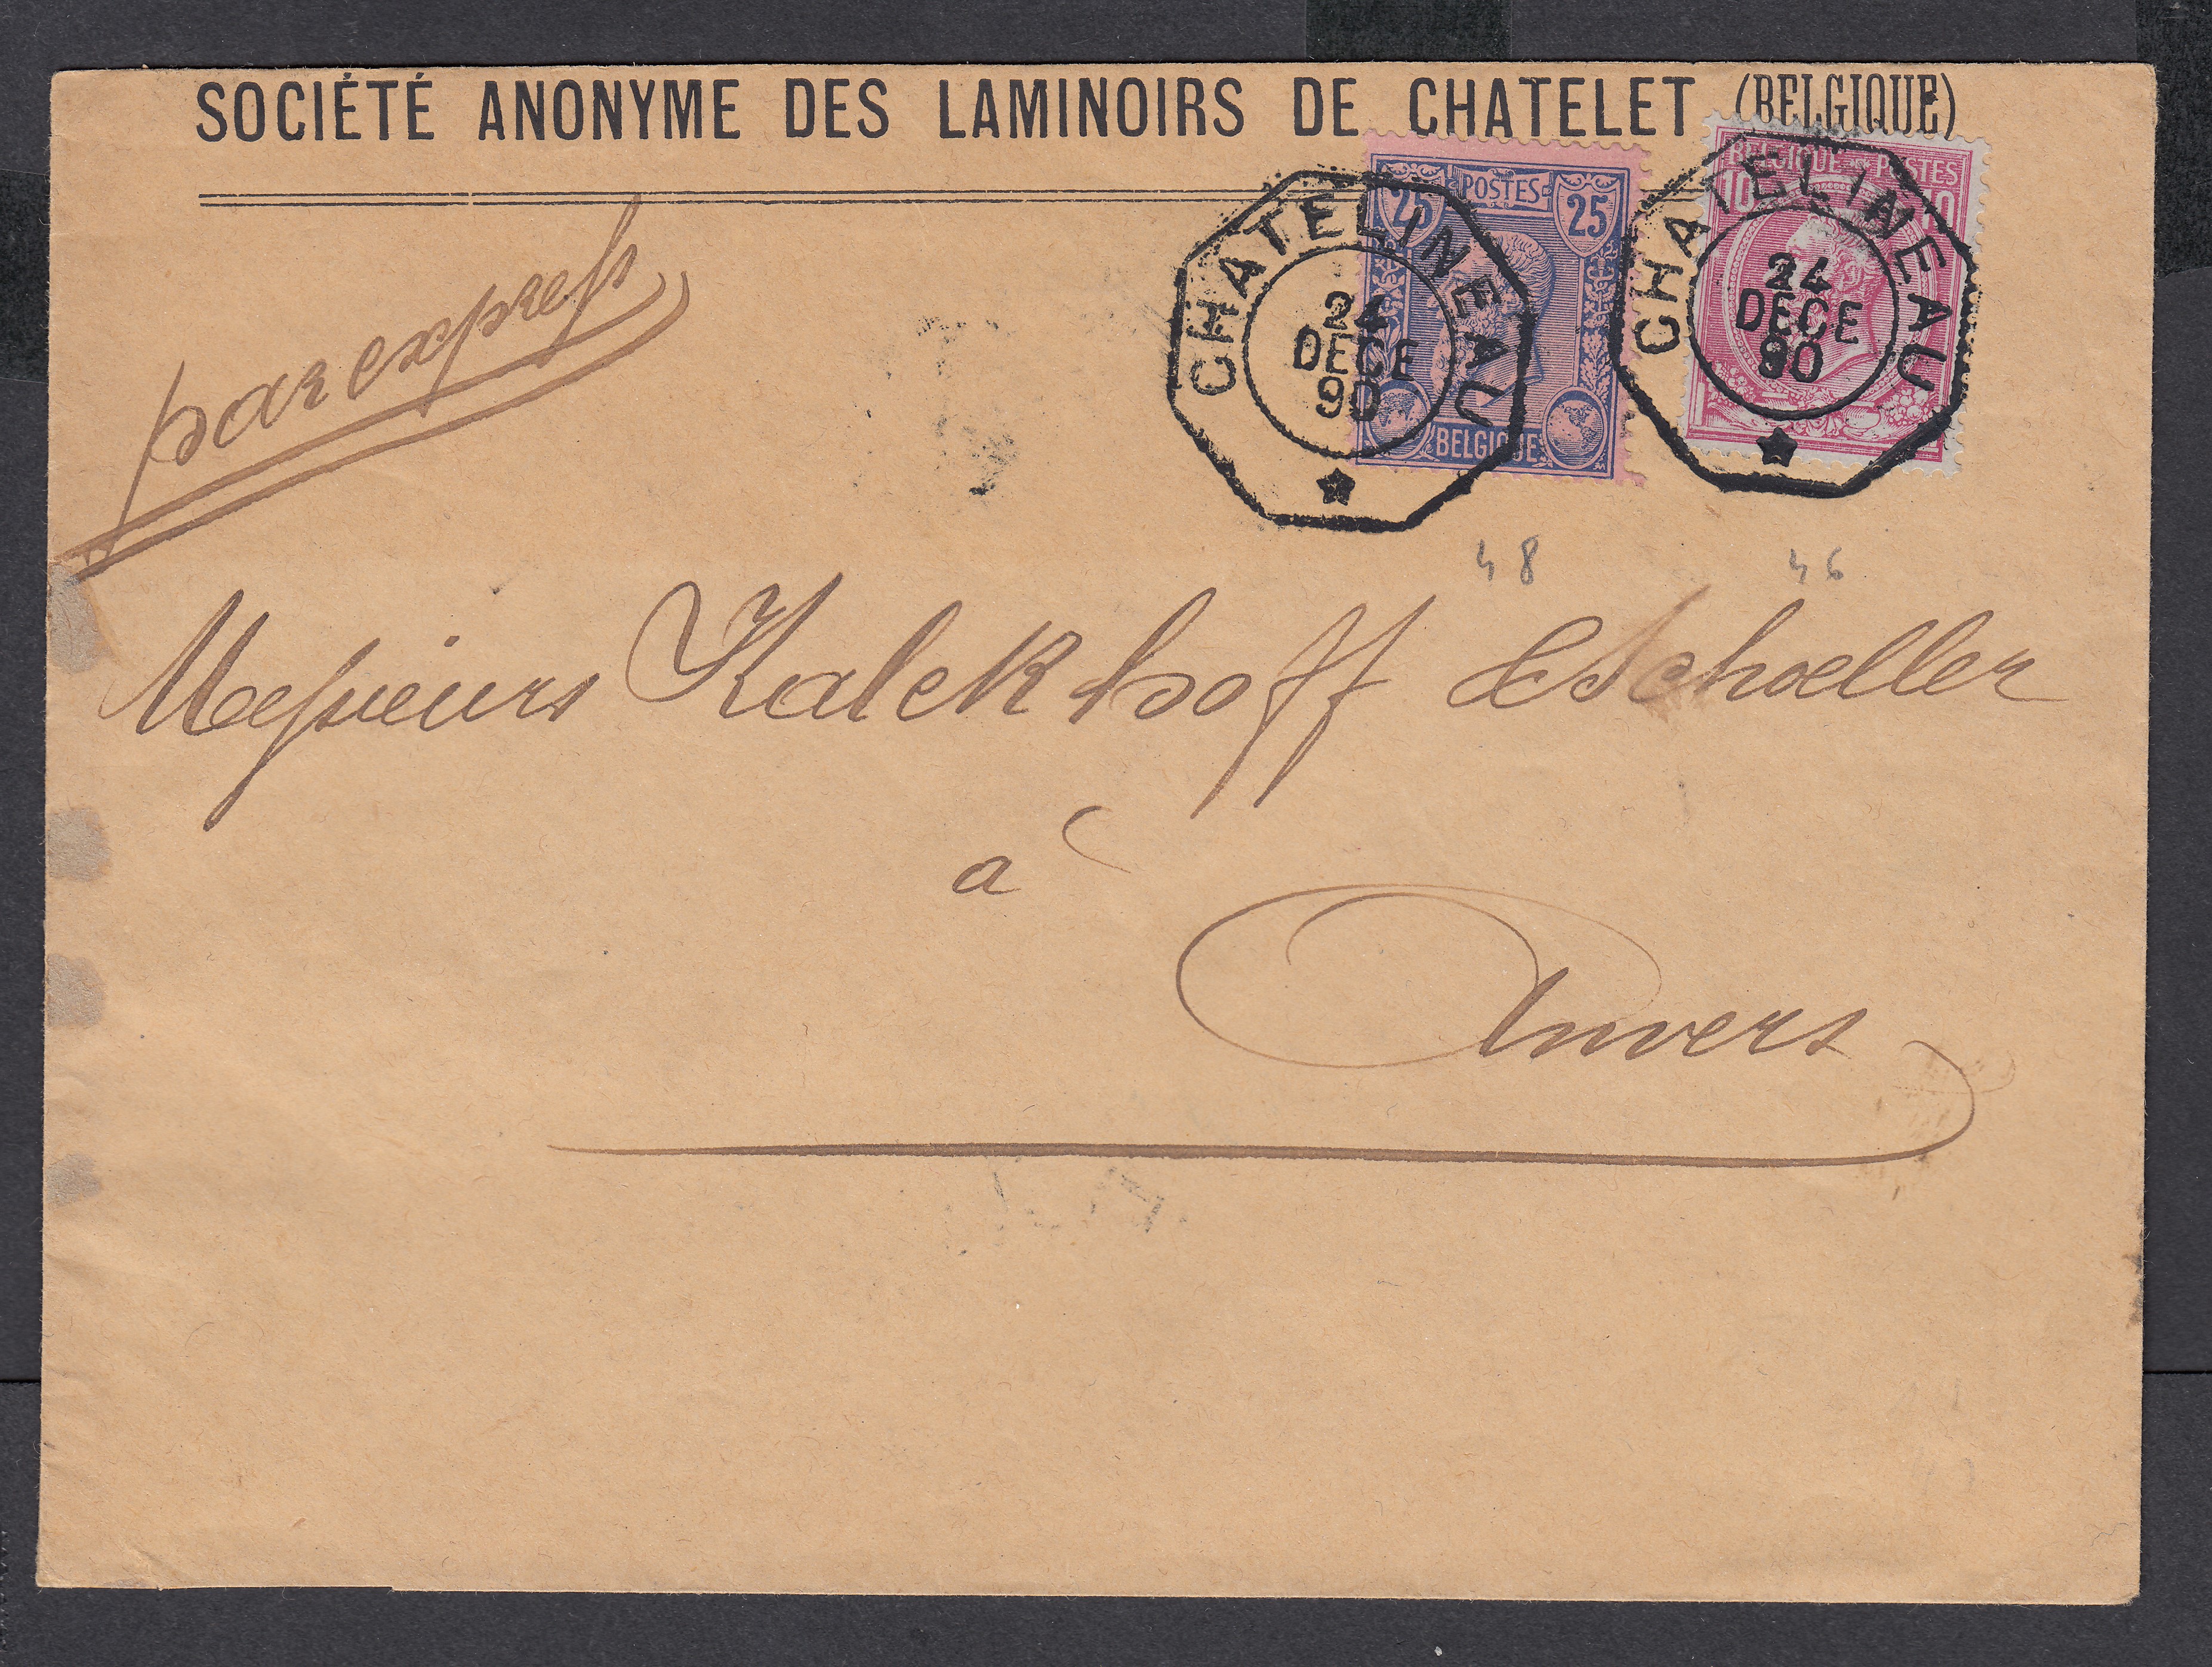 SOCIÉTÉ ANONYME DES LAMINOIRS DE CHATELET (BELGIQUE)
par express
25 POSTES 25
BELGIQUE
BELGIQUE POSTES
10 10
CHATELINEAU
24
DECE
90
CHATELINEAU
24
DECE
90
48 46
Messieurs Kalckhoff & Schoeller
à
Anvers